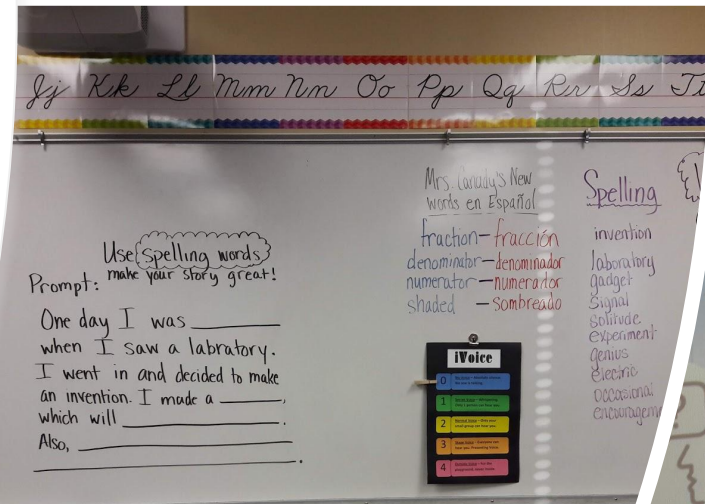 Jj Kk Ll Mm Nn Oo Pp Qq Rr Ss Tt
Use spelling words
make your story great!
Prompt:
One day I was
when I saw a labratory.
I went in and decided to make
an invention. I made a ,
which will .
Also,
.
Mrs. Canady's New
Words en Español
fraction - fracción
denominator - denominador
numerator - numerador
shaded - sombreado
iVoice
0
1
2
3
4
Spelling
invention
laboratory
gadget
signal
solitude
experiment
genius
electric
occasional